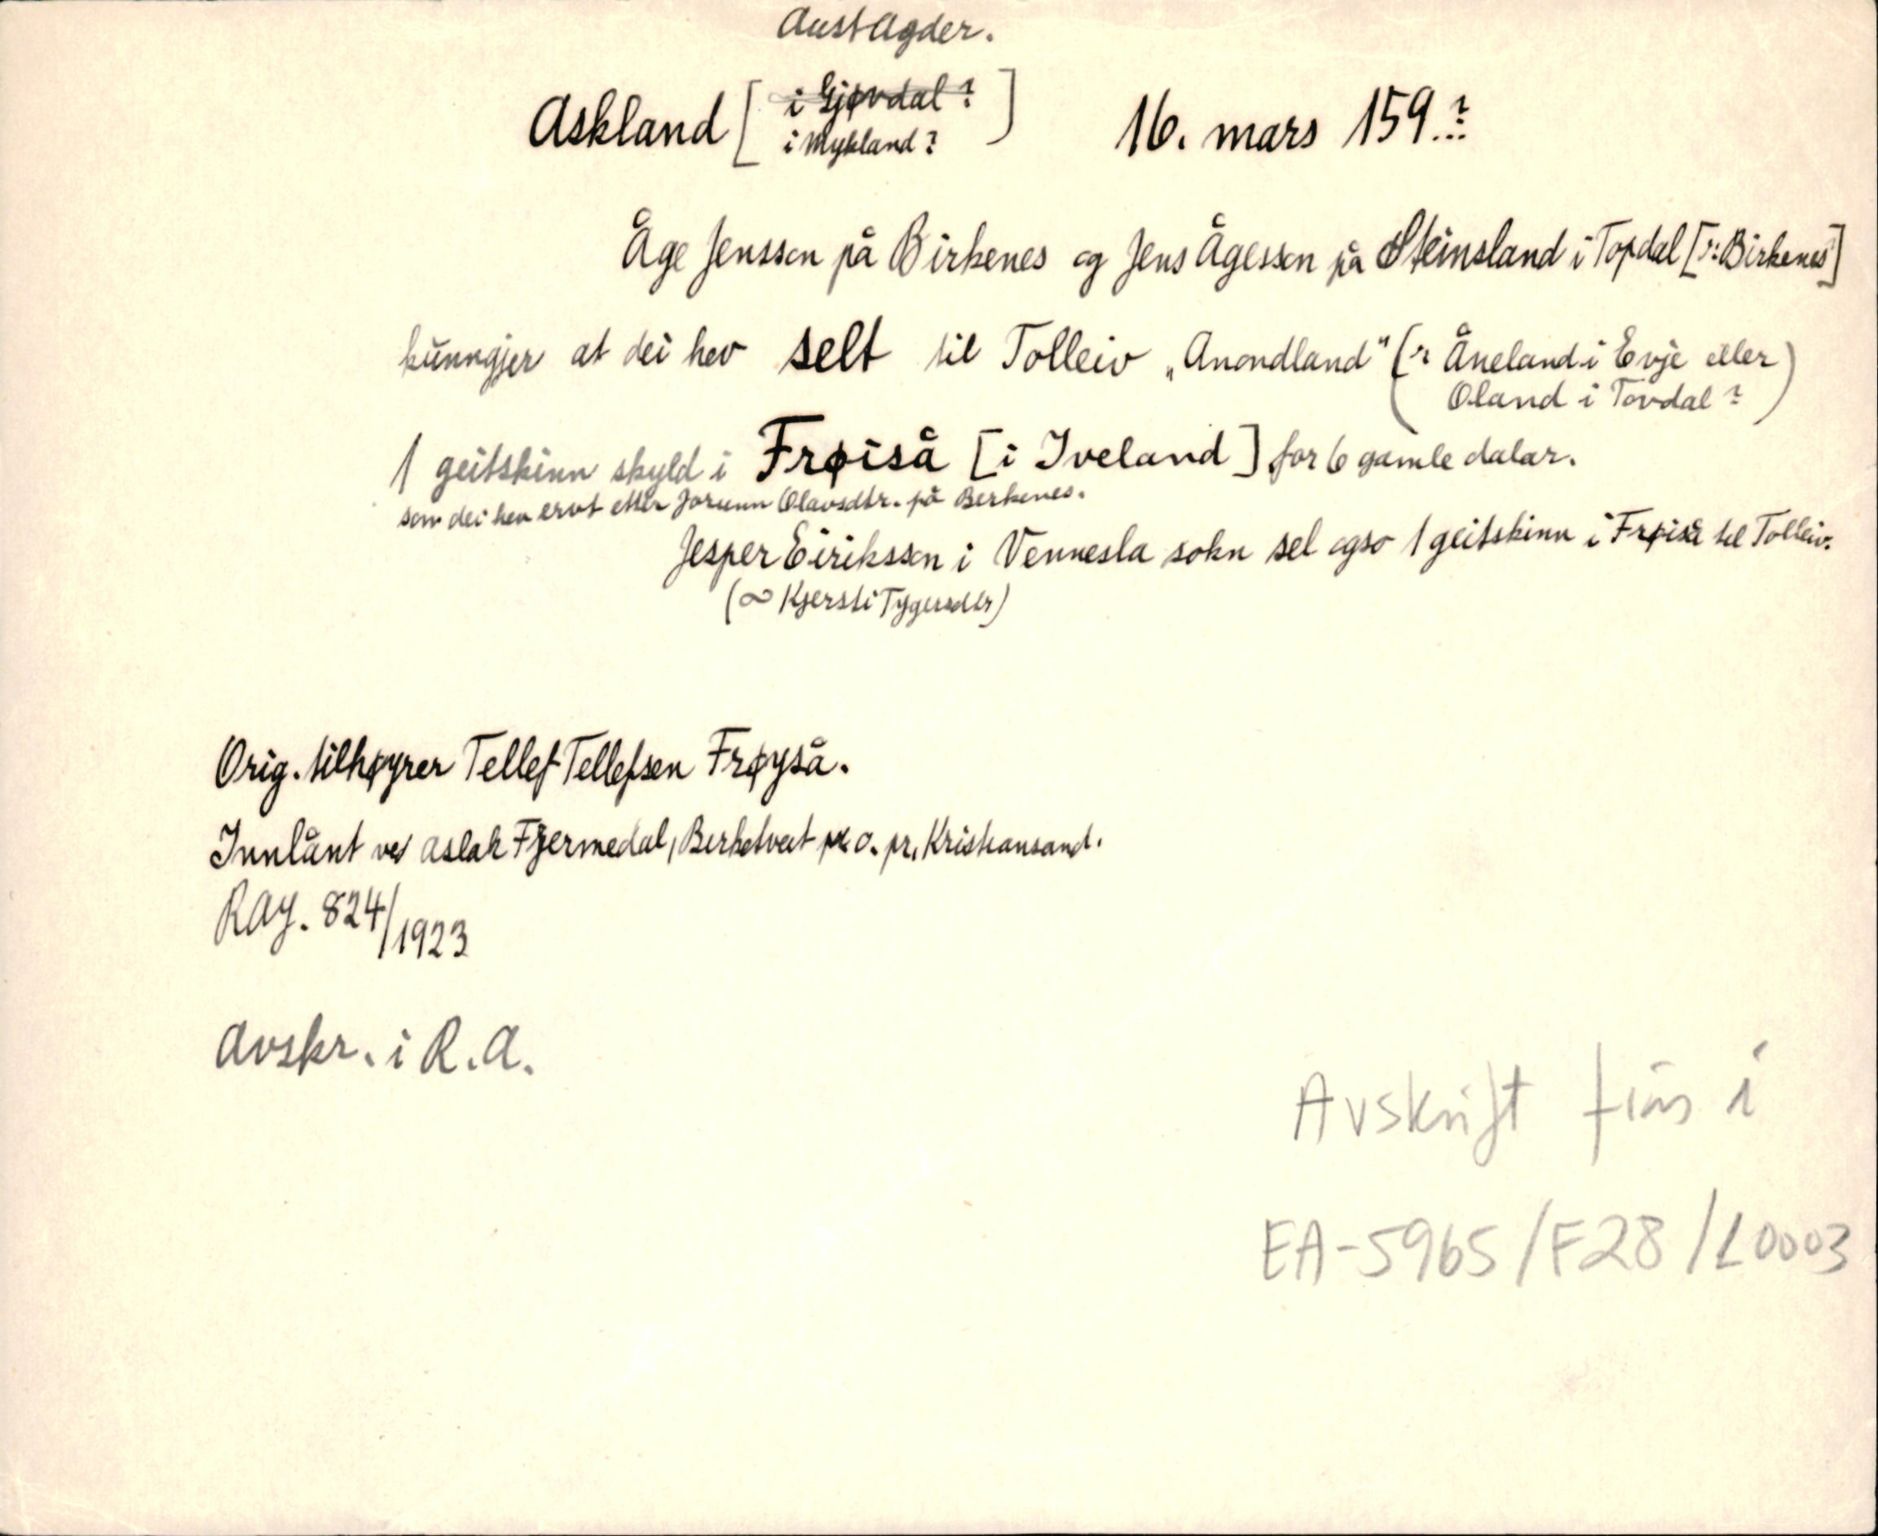 Aust Agder.
Askland [ i Gjøvdal? ] 16. mars 159.?
i Mykland?
Åge Jensson på Birkenes og Jens Ågesson på Steinsland i Topdal [ɔ: Birkenes]
kunngjer at dei hev selt til Tolleiv „Anondland" (ɔ: Åneland i Evje eller
Oland i Tovdal?)
1 geitskinn skyld i Frøiså [i Iveland] for 6 gamle dalar.
som dei hev ervt etter Jorunn Olavsdtr. på Berkenes.
Jesper Eiriksson i Vennesla sokn sel ogso 1 geitskinn i Frøiså til Tolleiv.
(∞ Kjersti Tygersdtr)
Orig. tilhøyrer Tellef Tellefsen Frøyså.
Innlånt ved Aslak Fjermedal, Birketveit p.o. pr. Kristiansand.
RAy. 824/1923
Avskr. i R.A.
Avskrift fins i
EA-5965/F28/L0003